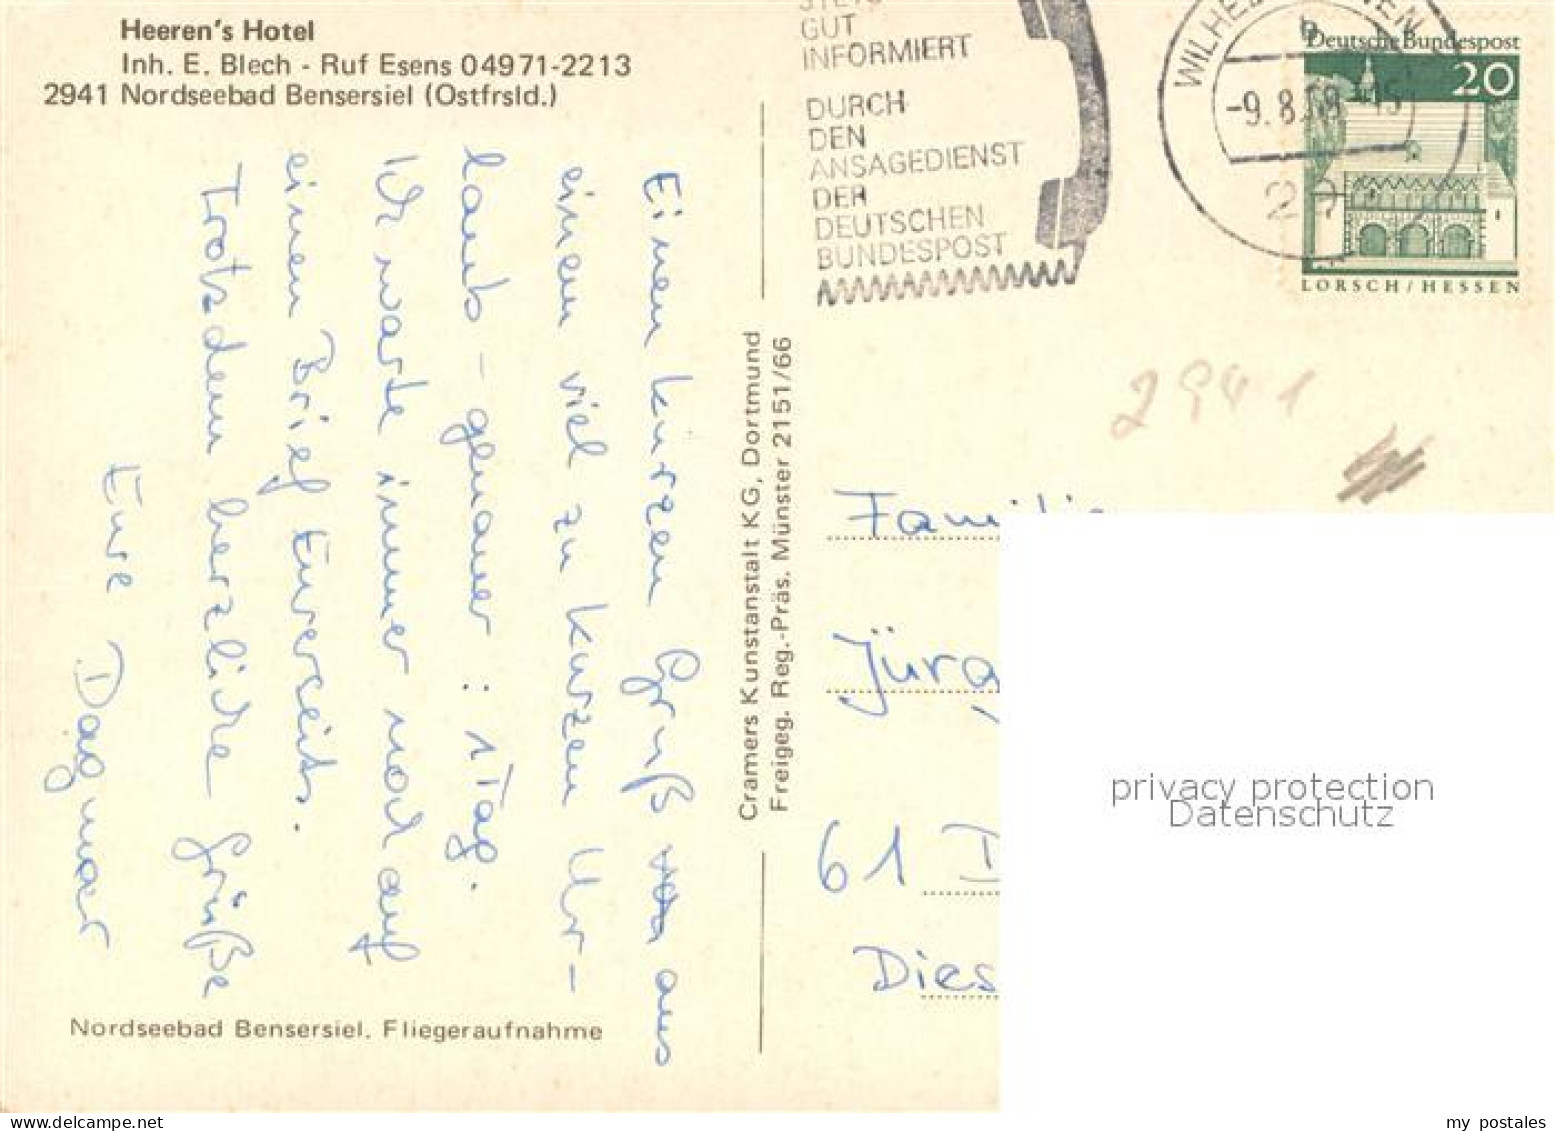 Heeren's Hotel
Inh. E. Blech - Ruf Esens 04971-2213
2941 Nordseebad Bensersiel (Ostfrsld.)
Einen kurzen Gruß von aus
einem viel zu kurzen Ur-
laub - genauer : 1 Tag.
Ich warte immer noch auf
einen Brief Eurerseits.
Trotzdem herzliche Grüße
Eure Dagmar
Nordseebad Bensersiel. Fliegeraufnahme
Cramers Kunstanstalt KG, Dortmund
Freigeg. Reg.-Präs. Münster 2151/66
GUT
INFORMIERT
DURCH
DEN
ANSAGEDIENST
DER
DEUTSCHEN
BUNDESPOST
-9.8.68-15
Deutsche Bundespost
20
LORSCH/HESSEN
2941
Familie
Jürg
61 D
Dies
privacy protection
Datenschutz
my postales